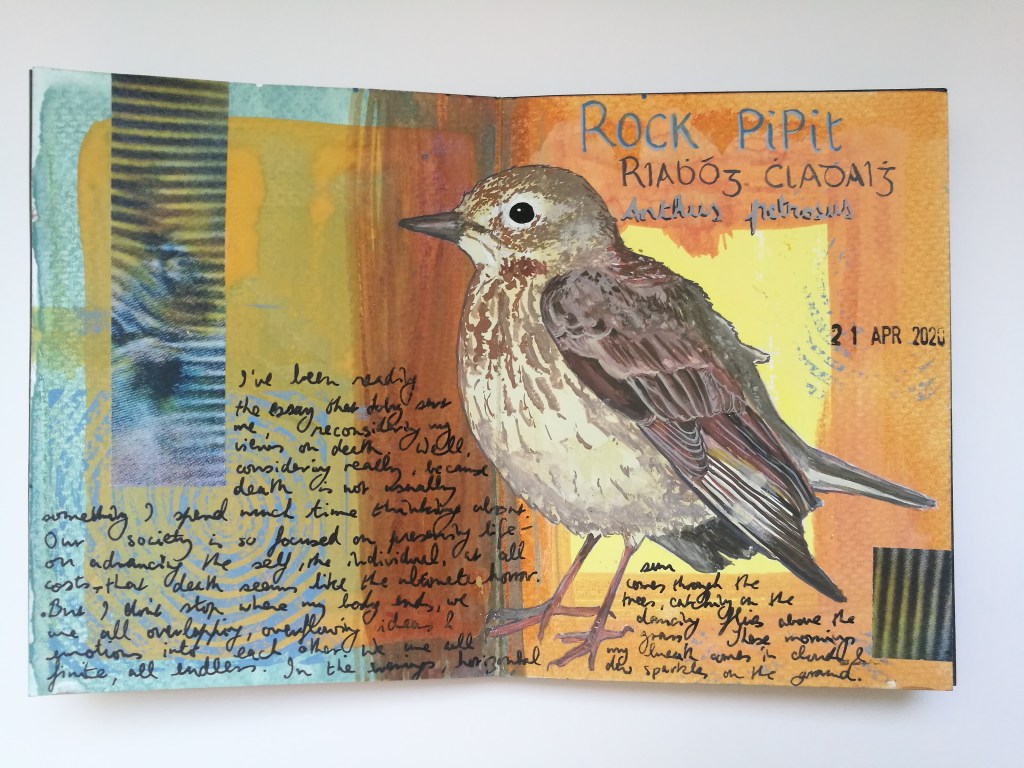 ROCK PiPit
RIAḂÓG ĊLADAIĠ
Anthus petrosus
21 APR 2020
I've been reading
the essay that Toby sent
me, reconsidering my
views on death. Well,
considering really, because
death is not usually
something I spend much time thinking about.
Our society is so focused on preserving life –
on advancing the self, the individual, at all
costs, that death seems like the ultimate horror.
But I don't stop where my body ends, we
are all overlapping, overflowing ideas &
emotions into each other. We are all
finite, all endless. In the evenings, horizontal
sun
comes through the
trees, catching on the
dancing flies above the
grass. These mornings
my breath comes in clouds &
dew sparkles on the ground.